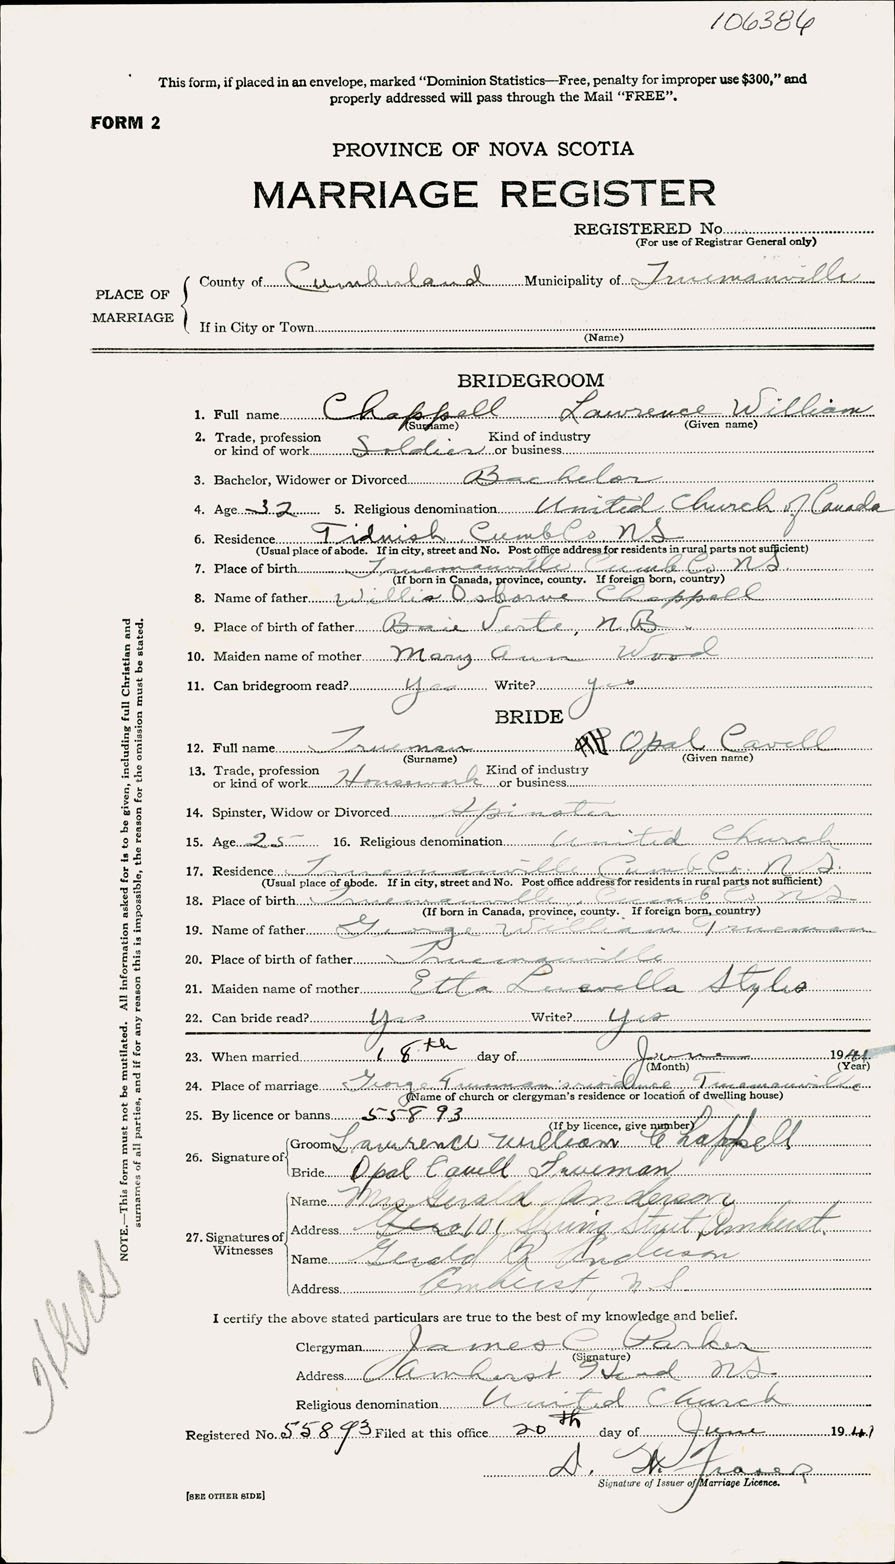 106386
This form, if placed in an envelope, marked "Dominion Statistics—Free, penalty for improper use $300," and
properly addressed will pass through the Mail "FREE".
FORM 2
PROVINCE OF NOVA SCOTIA
MARRIAGE REGISTER
REGISTERED No.
(For use of Registrar General only)
PLACE OF MARRIAGE
County of Cumberland Municipality of Truemanville
If in City or Town
(Name)
BRIDEGROOM
1. Full name Chappell Lawrence William
(Surname) (Given name)
2. Trade, profession or kind of work Soldier Kind of industry or business
3. Bachelor, Widower or Divorced Bachelor
4. Age 32 5. Religious denomination United Church of Canada
6. Residence Tidnish Cumb Co NS
(Usual place of abode. If in city, street and No. Post office address for residents in rural parts not sufficient)
7. Place of birth Truemanville Cumb Co NS.
(If born in Canada, province, county. If foreign born, country)
8. Name of father Willis Osborne Chappell
9. Place of birth of father Baie Verte, N.B.
10. Maiden name of mother Mary Ann Wood
11. Can bridegroom read? Yes Write? yes
BRIDE
12. Full name Trueman Opal Cavell
(Surname) (Given name)
13. Trade, profession or kind of work Housework Kind of industry or business
14. Spinster, Widow or Divorced Spinster
15. Age 25 16. Religious denomination United Church
17. Residence Truemanville Cumb Co. N.S.
(Usual place of abode. If in city, street and No. Post office address for residents in rural parts not sufficient)
18. Place of birth Truemanville, Cumb Co NS
(If born in Canada, province, county. If foreign born, country)
19. Name of father George William Trueman
20. Place of birth of father Truemanville
21. Maiden name of mother Etta Luavella Styles
22. Can bride read? Yes Write? Yes
23. When married 18th day of June 1941
(Month) (Year)
24. Place of marriage George Trueman's residence, Truemanville
(Name of church or clergyman's residence or location of dwelling house)
25. By licence or banns 55893
(If by licence, give number)
26. Signature of
Groom Lawrence William Chappell
Bride Opal Cavell Trueman
27. Signatures of Witnesses
Name Mrs Gerald Anderson
Address 101 Spring Street, Amherst.
Name Gerald B. Anderson
Address Amherst, N.S.
I certify the above stated particulars are true to the best of my knowledge and belief.
Clergyman James C Parker
(Signature)
Address Amherst Head NS.
Religious denomination United Church
Registered No. 55893 Filed at this office 20th day of June 1941
D. H. Fraser
Signature of Issuer of Marriage Licence.
[SEE OTHER SIDE]
NOTE.—This form must not be mutilated. All information asked for is to be given, including full Christian and
surnames of all parties, and if for any reason this is impossible, the reason for the omission must be stated.